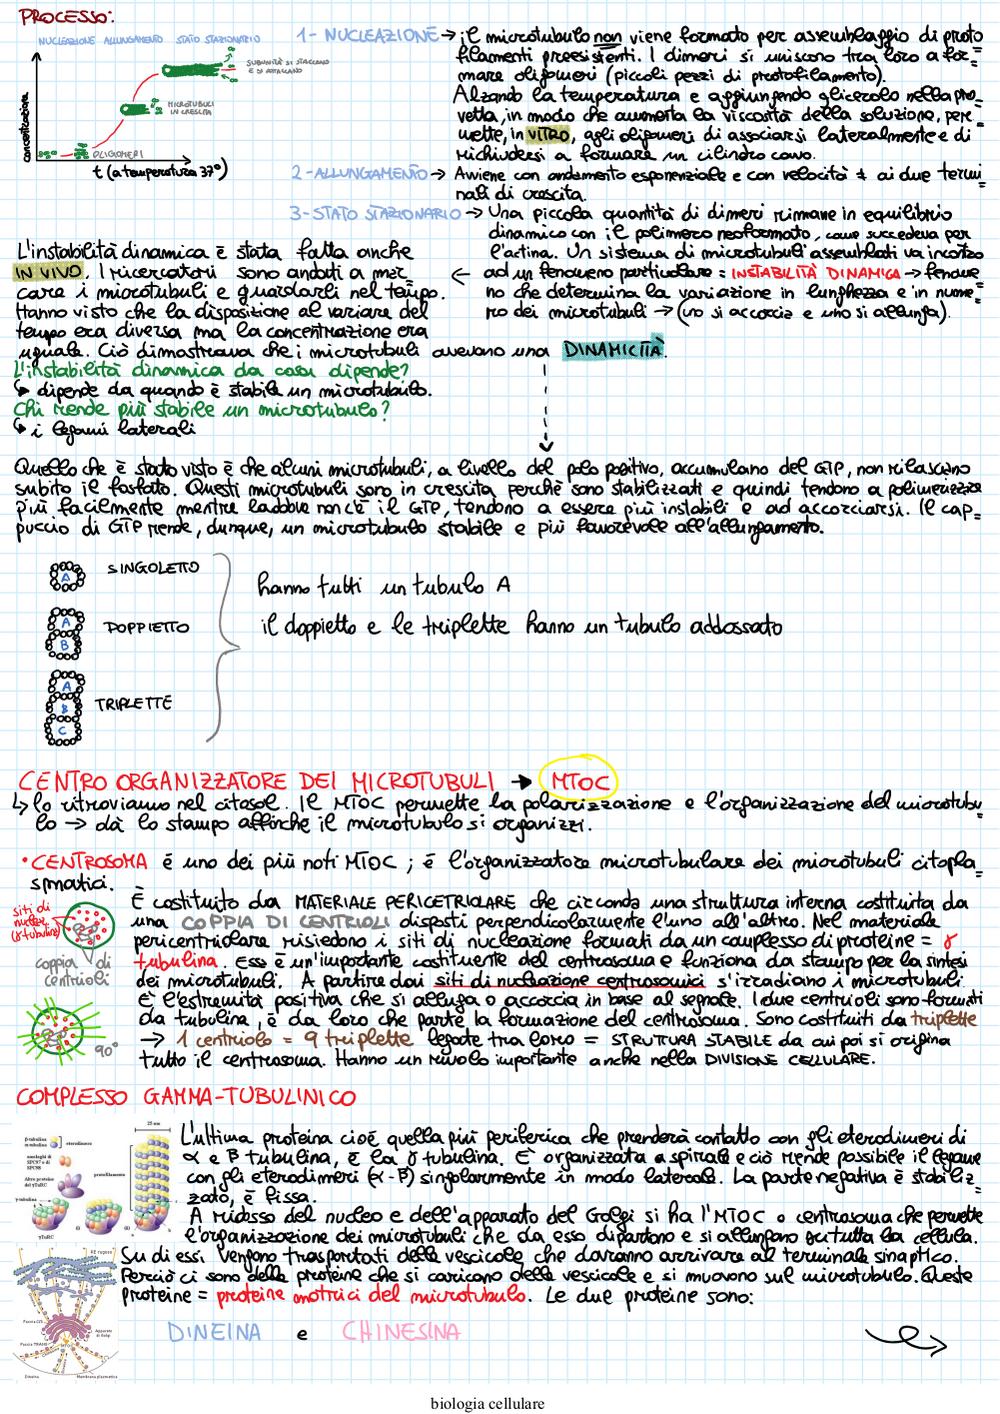 PROCESSO:
NUCLEAZIONE ALLUNGAMENTO STATO STAZIONARIO
concentrazione
SUBUNITÀ SI STACCANO
E SI ATTACCANO
MICROTUBULI
IN CRESCITA
OLIGOMERI
t (a temperatura 37°)
1- NUCLEAZIONE → il microtubulo non viene formato per assemblaggio di proto
filamenti preesistenti. I dimeri si uniscono tra loro a for=
mare oligomeri (piccoli pezzi di protofilamento).
Alzando la temperatura e aggiungendo glicerolo nella pro=
vetta, in modo che aumenta la viscosità della soluzione, per=
mette, in VITRO, agli oligomeri di associarsi lateralmente e di
richiudersi a formare un cilindro cavo.
2-ALLUNGAMENTO → Avviene con andamento esponenziale e con velocità ≠ ai due termi=
nali di crescita.
3-STATO STAZIONARIO → Una piccola quantità di dimeri rimane in equilibrio
dinamico con il polimero neoformato, come succedeva per
l'actina. Un sistema di microtubuli assemblati va incontro
← ad un fenomeno particolare = INSTABILITÀ DINAMICA → fenome
no che determina la variazione in lunghezza e in nume=
ro dei microtubuli → (uno si accorcia e uno si allunga).
L'instabilità dinamica è stata fatta anche
IN VIVO. I ricercatori sono andati a mar
care i microtubuli e guardarli nel tempo.
Hanno visto che la disposizione al variare del
tempo era diversa ma la concentrazione era
uguale. Ciò dimostrava che i microtubuli avevano una DINAMICITÀ.
L'instabilità dinamica da cosa dipende?
↳ dipende da quando è stabile un microtubulo.
Chi rende più stabile un microtubulo?
↳ i legami laterali
Quello che è stato visto è che alcuni microtubuli, a livello del polo positivo, accumulano del GTP, non rilasciano
subito il fosfato. Questi microtubuli sono in crescita perchè sono stabilizzati e quindi tendono a polimerizzare
più facilmente mentre laddove non c'è il GTP, tendono a essere più instabili e ad accorciarsi. Il cap=
puccio di GTP rende, dunque, un microtubulo stabile e più favorevole all'allungamento.
A
SINGOLETTO
A
B
DOPPIETTO
A
B
C
TRIPLETTE
hanno tutti un tubulo A
il doppietto e le triplette hanno un tubulo addossato
CENTRO ORGANIZZATORE DEI MICROTUBULI → MTOC
↳ lo ritroviamo nel citosol. Il MTOC permette la polarizzazione e l'organizzazione del microtubu=
lo → dà lo stampo affinchè il microtubulo si organizzi.
• CENTROSOMA è uno dei più noti MTOC; è l'organizzatore microtubulare dei microtubuli citopla=
smatici.
siti di
nuclea
(γ tubulina)
coppia di
centrioli
90°
È costituito da MATERIALE PERICETRIOLARE che circonda una struttura interna costituita da
una COPPIA DI CENTRIOLI disposti perpendicolarmente l'uno all'altro. Nel materiale
pericentriolare risiedono i siti di nucleazione formati da un complesso di proteine = γ
tubulina. Esse è un'importante costituente del centrosoma e funziona da stampo per la sintesi
dei microtubuli. A partire dai siti di nucleazione centrosomici s'irradiano i microtubuli.
È l'estremità positiva che si allunga o accorcia in base al segnale. I due centrioli sono formati
da tubulina, è da loro che parte la formazione del centrosoma. Sono costituiti da triplette
→ 1 centriolo = 9 triplette legate tra loro = STRUTTURA STABILE da cui poi si origina
tutto il centrosoma. Hanno un ruolo importante anche nella DIVISIONE CELLULARE.
COMPLESSO GAMMA-TUBULINICO
25 nm
β-tubulina
α-tubulina
eterodimero
analoghi di
SPC97 e di
SPC98
protofilamento
Altre proteine
del γTuRC
γ-tubulina
γTuRC
L'ultima proteina cioè quella più periferica che prenderà contatto con gli eterodimeri di
α e β tubulina, è la γ tubulina. È organizzata a spirale e ciò rende possibile il legame
con gli eterodimeri (α-β) singolarmente in modo laterale. La parte negativa è stabiliz=
zato, è fissa.
A ridosso del nucleo e dell'apparato del Golgi si ha l'MTOC o centrosoma che permette
l'organizzazione dei microtubuli che da esso dipartono e si allungano su tutta la cellula.
Su di essi vengono trasportati delle vescicole che dovranno arrivare al terminale sinaptico.
Perciò ci sono delle proteine che si caricano delle vescicole e si muovono sul microtubulo. Queste
proteine = proteine motrici del microtubulo. Le due proteine sono:
RE rugoso
Faccia CIS
Apparato
di Golgi
Faccia TRANS
MTOC
Dineina
Membrana plasmatica
DINEINA e CHINESINA
biologia cellulare